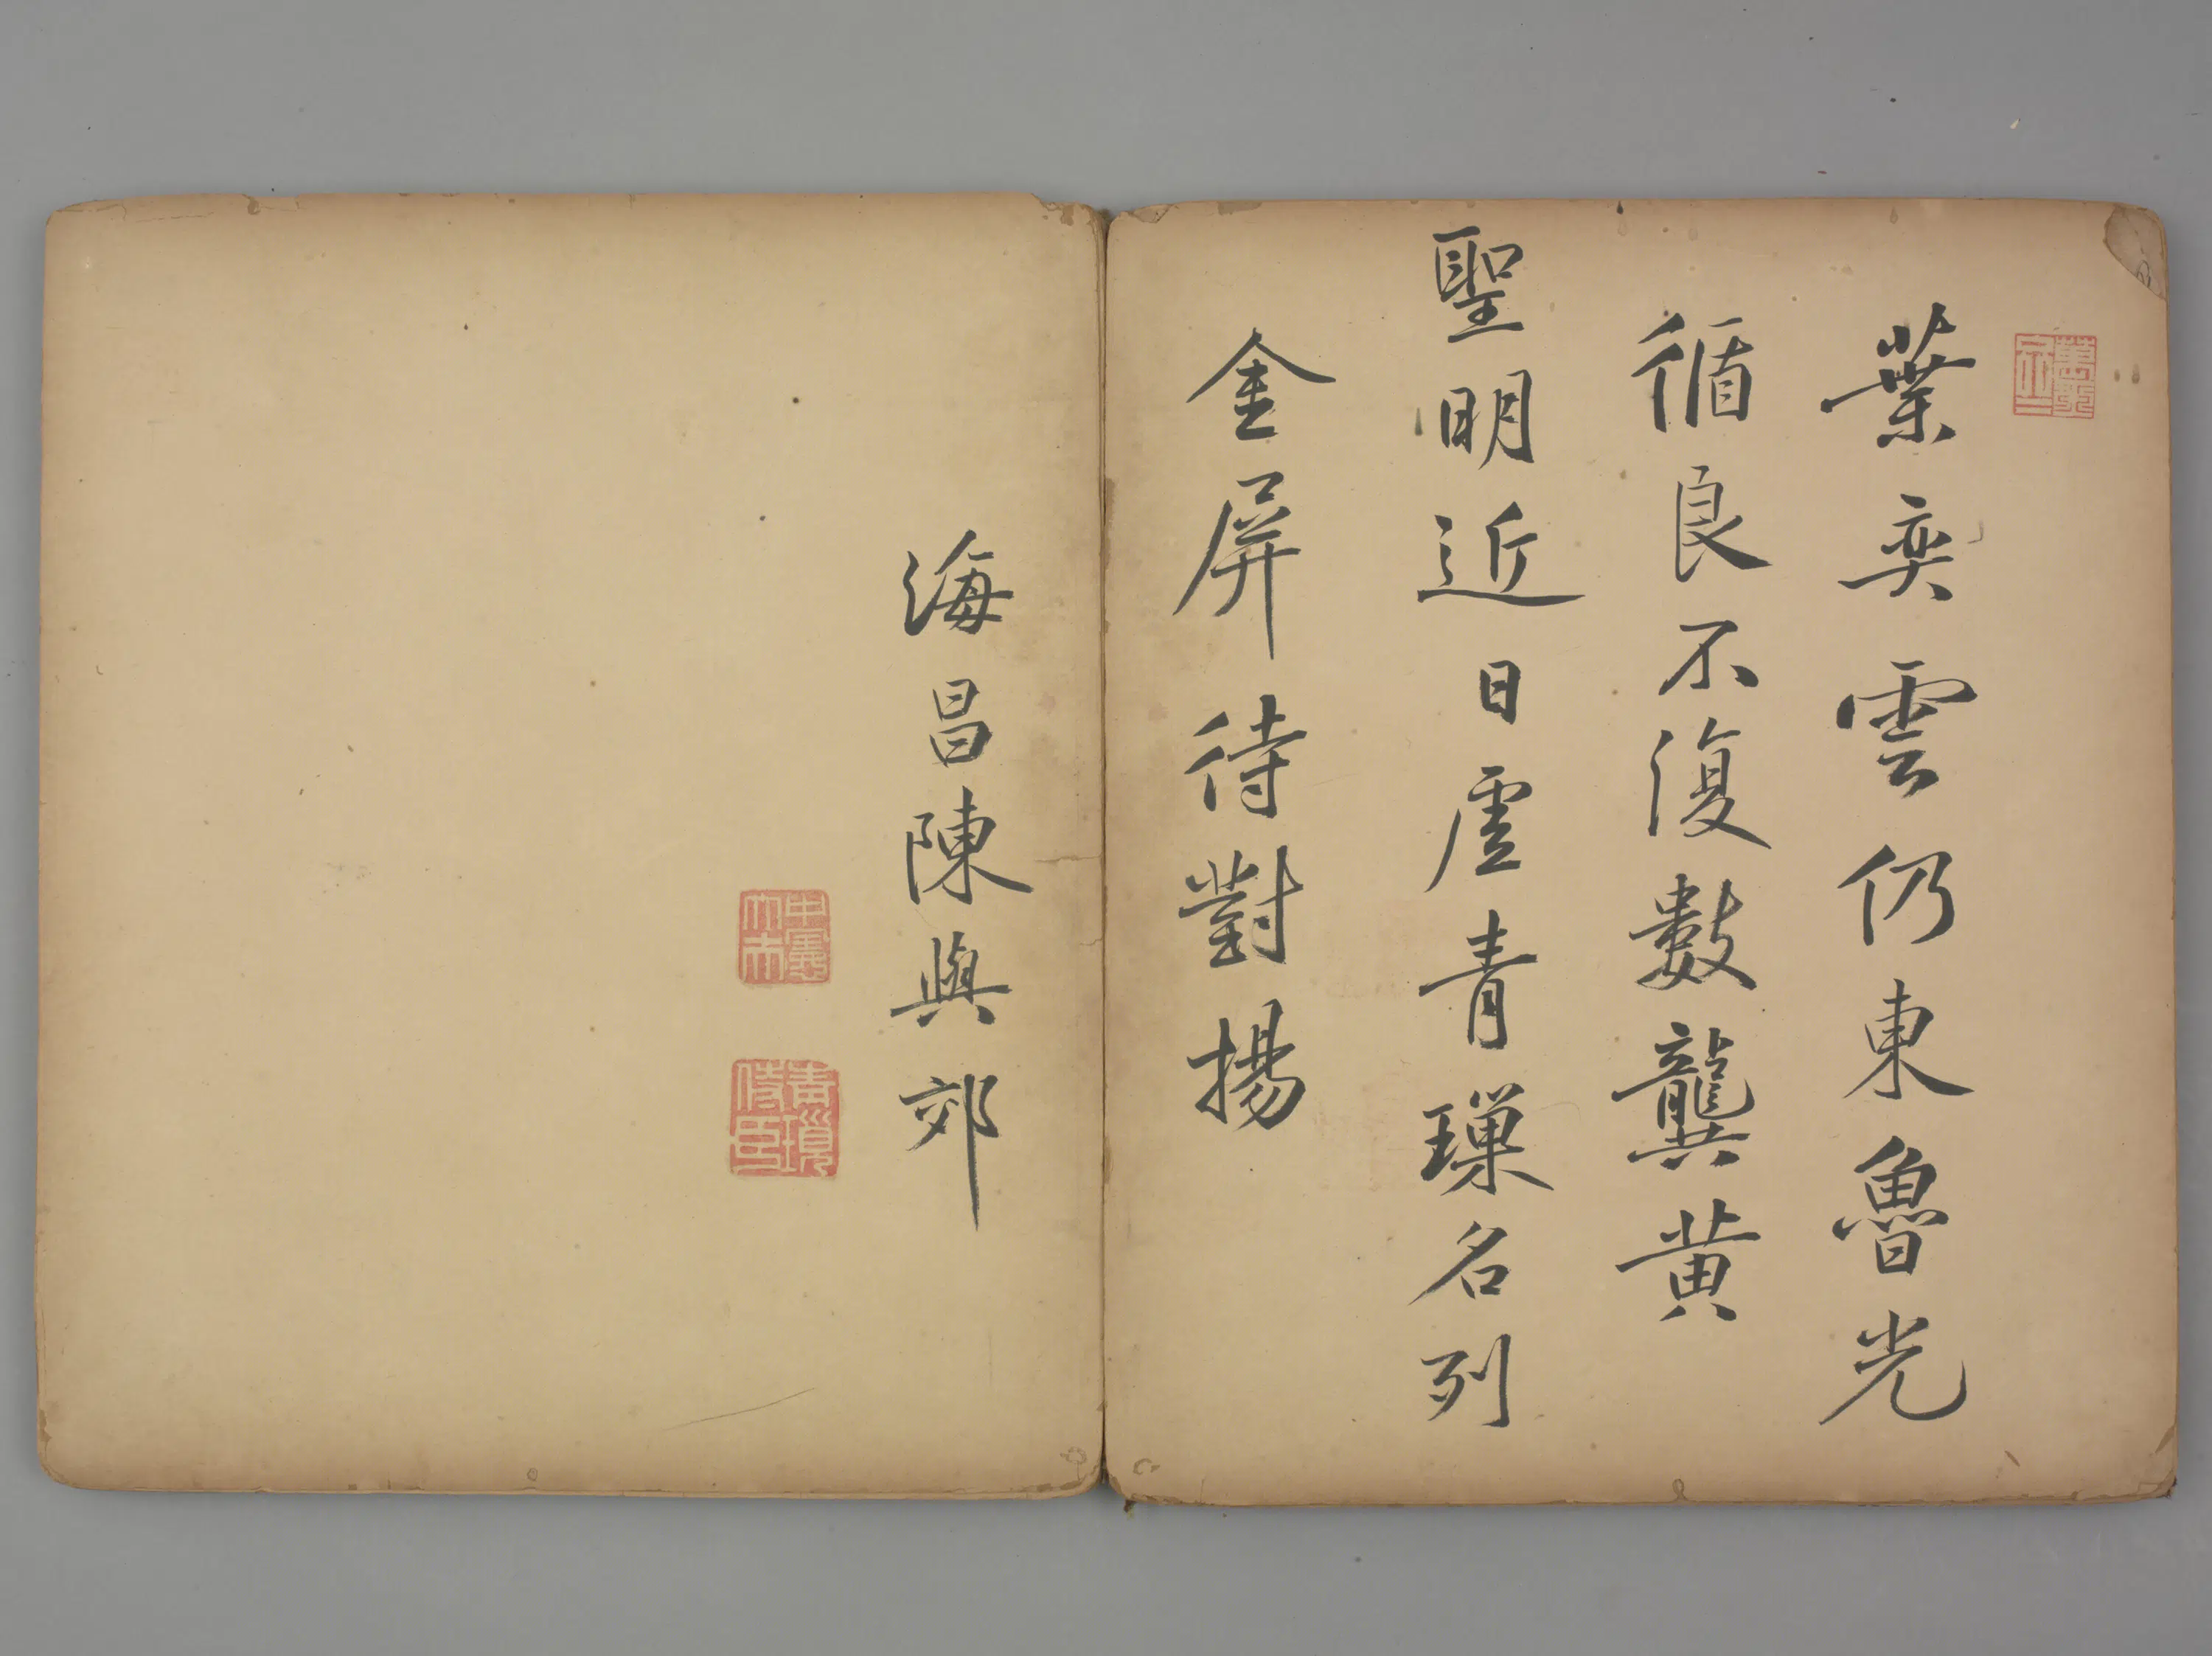 葉奕雲仍東魯光
循良不復數龔黃
聖明近日虛青瑣名列
金屏待對揚
海昌陳與郊
青瑣侍臣